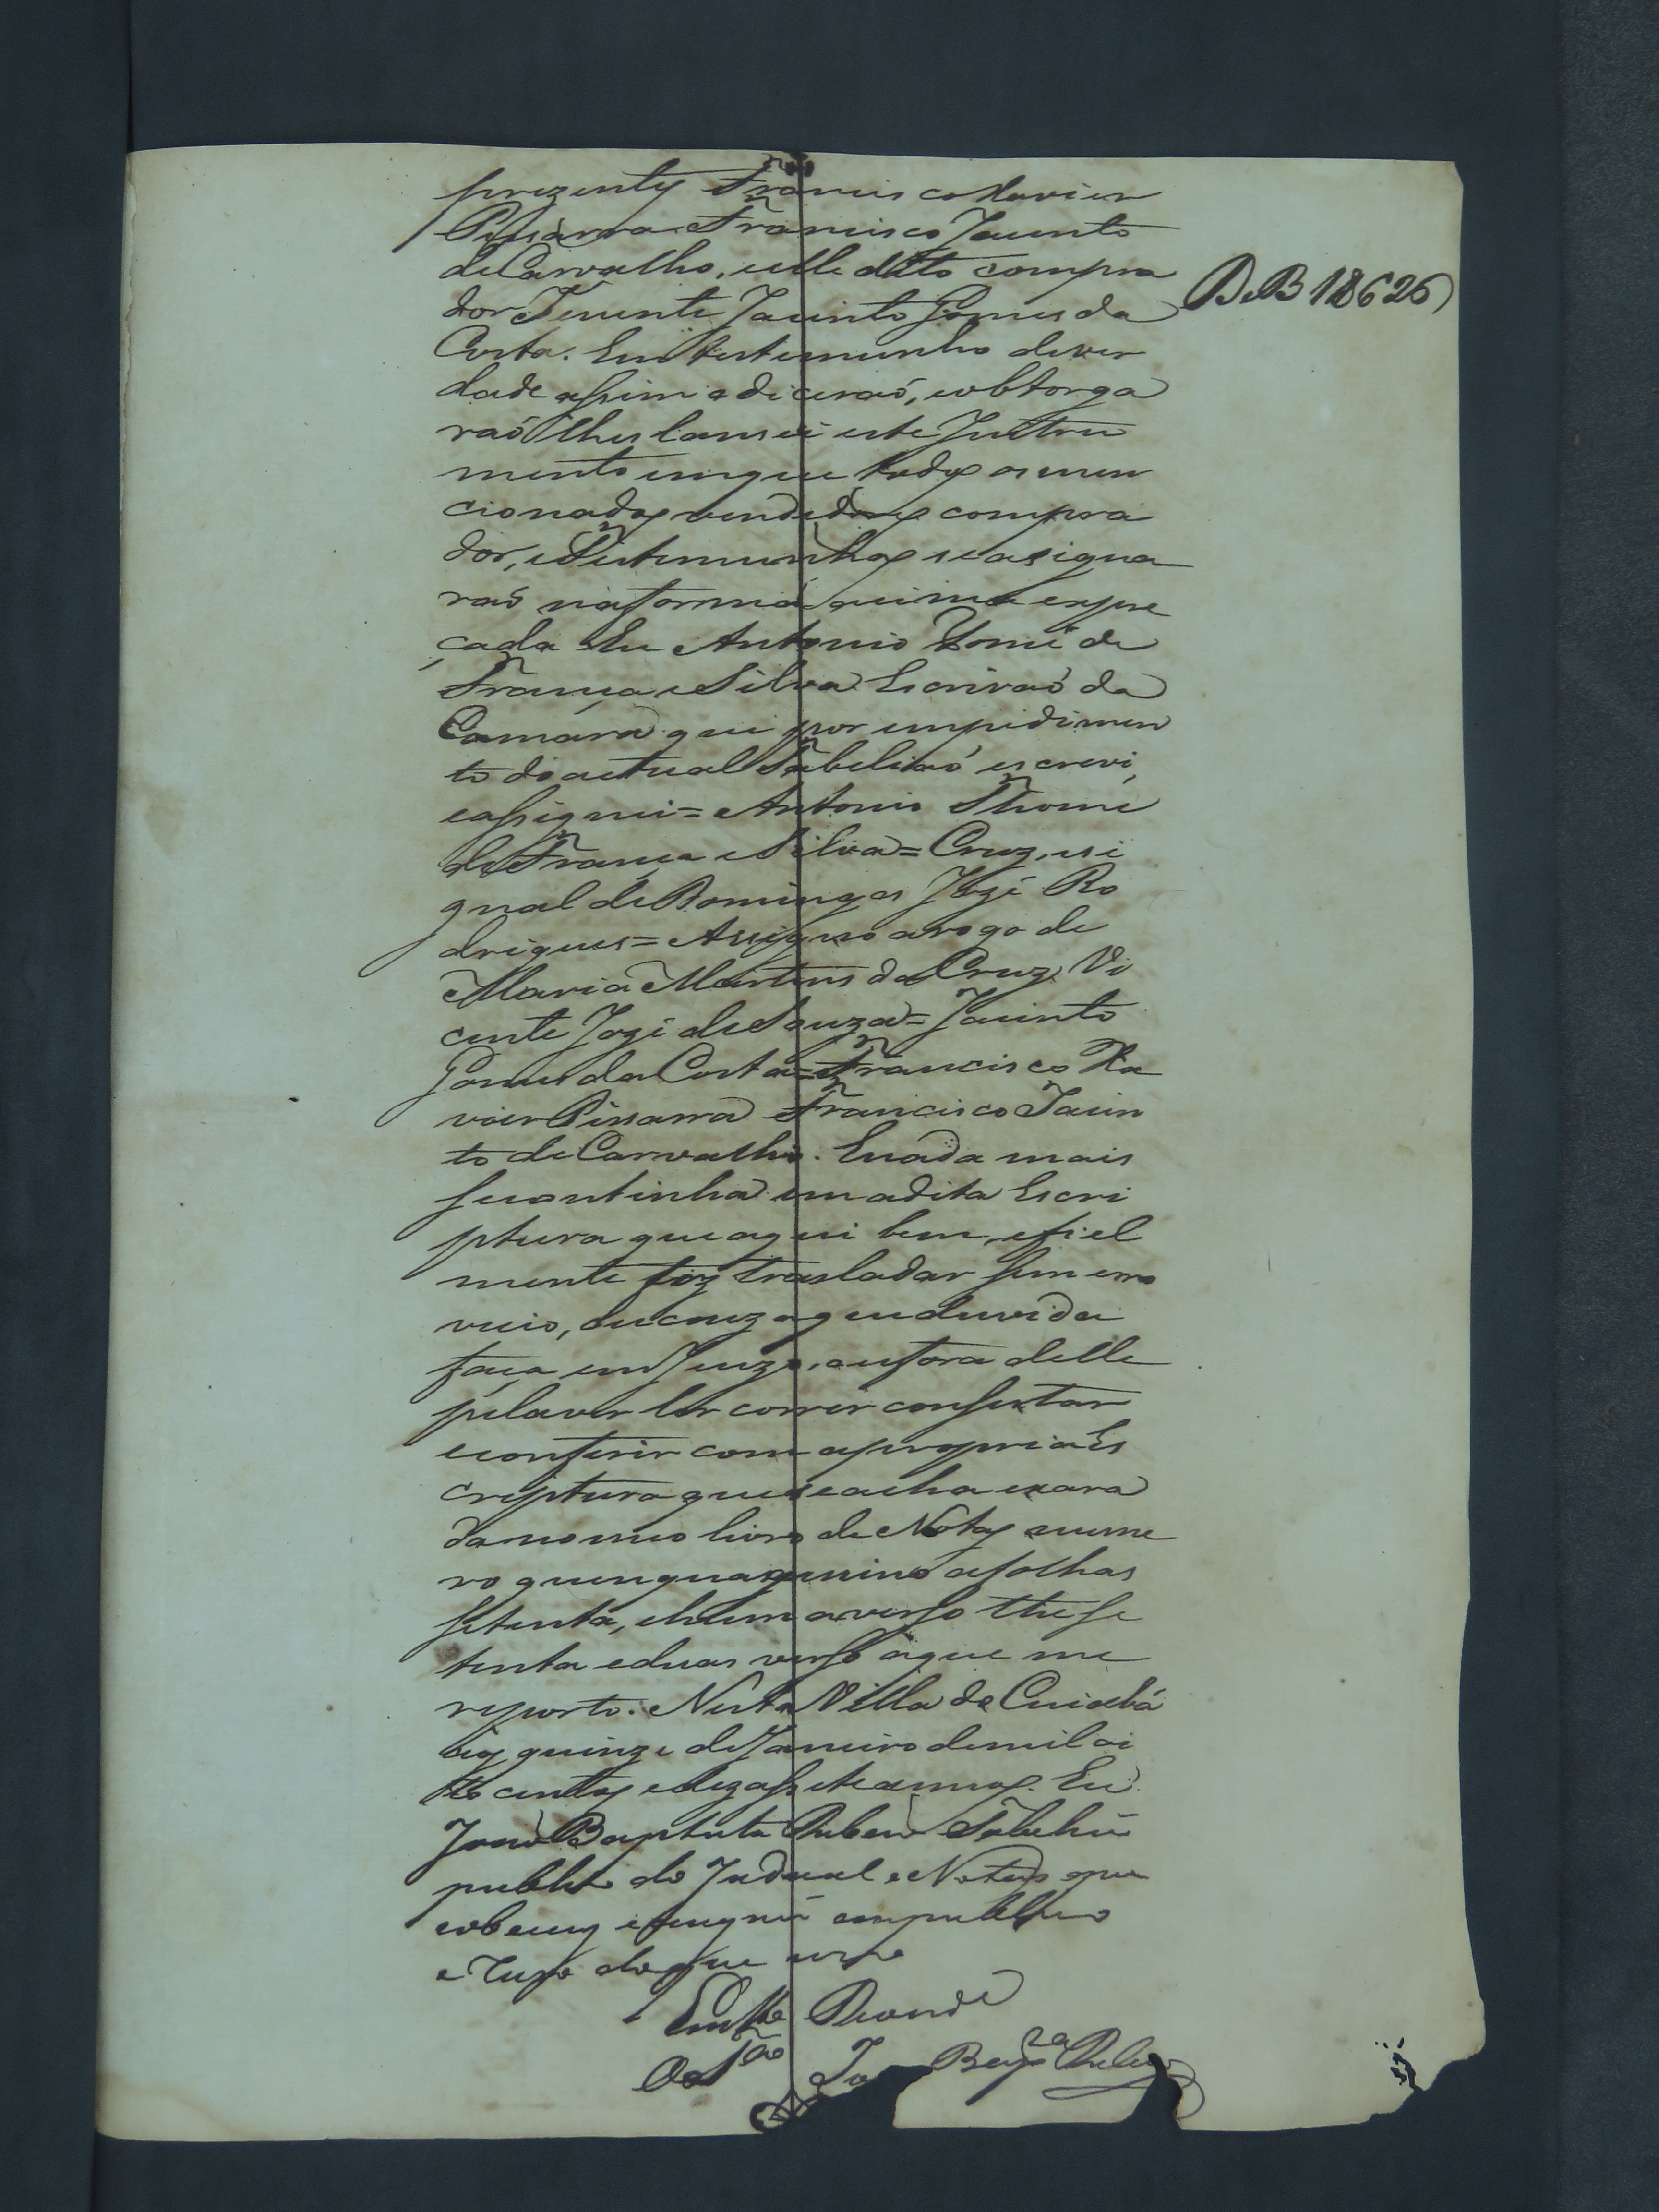 prezentes Francisco Xavier
Pissarra Francisco Jacinto
de Carvalho, eelle ditto compra
dor Tenente Jacinto Gomes da
DeB 18626
Costa. Em testemunho dever
dade assim odiceraó, eobtorga
raó lhes lansei este Instru
mento emque todos osmen
cionados vendedores compra
dor, eTestemunhas seasigna
raó naforma acima expre
çada Eu Antonio Tomé de
França eSilva Escrivaó da
Camara que por empidimen
to doactual Tabeliaó escrevi,
eassignei = Antonio Thomé
deFrança eSilva = Cruz, esi
gnal deDomingos Jozé Ro
drigues = Assigno arogo de
Maria Martins da Cruz Vi
cente Jozé deSouza = Jacinto
Gomes da Costa = Francisco Xa
vier Pissarra Francisco Jacin
to de Carvalho. Enada mais
secontinha em adita Escri
ptura queaqui bem, efiel
mente fiz trasladar sem erro
vicio, oucouza queduvida
faça emJuizo, oufora delle
pelaver ler correr consertar
econferir com apropria Es
criptura queseacha exara
da nomeo livro de Notas nume
ro quenquagessimo afolhas
setenta, ehuma verso the se
tenta eduas verso aque me
reporto. Nesta Villa de Cuiabá
aos quinze deJaneiro demil oi
to centos edezassete annos. Eu
Joaó Baptista Tabeliam
publico do Judicial e Notas que
sobescrevy easigney empublico
e
Em tto Verde
João Bapta